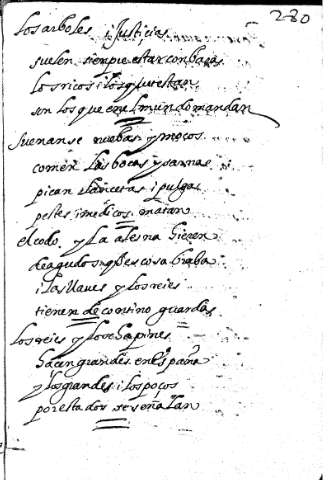 280
Los arboles i Justicias
suelen siempre estar con baras
los ricos i los que restan
son los que en el mundo mandan
suenanse nuebas y moços
comen las bocas y sarnas
pican lancetas i pulgas
pestes i medicos matan
el codo y La alesna hieren
de agudos ques cosa braba
i las llaues y los reies
tienen de contino guardas
los reies y los chapines
haçen grandes en españa
y los grandes i los poços
por estados se señalan